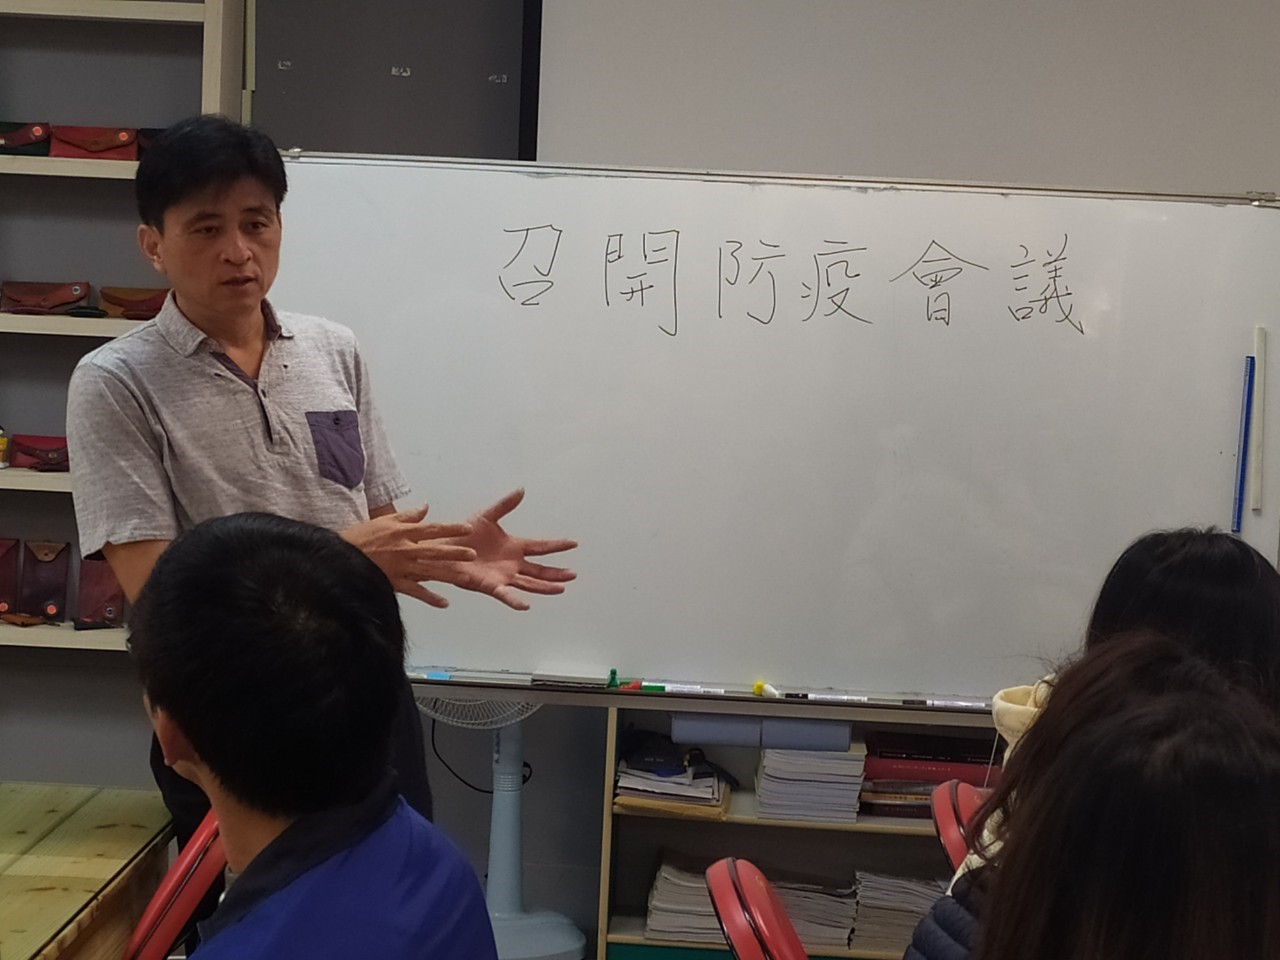 召開防疫會議